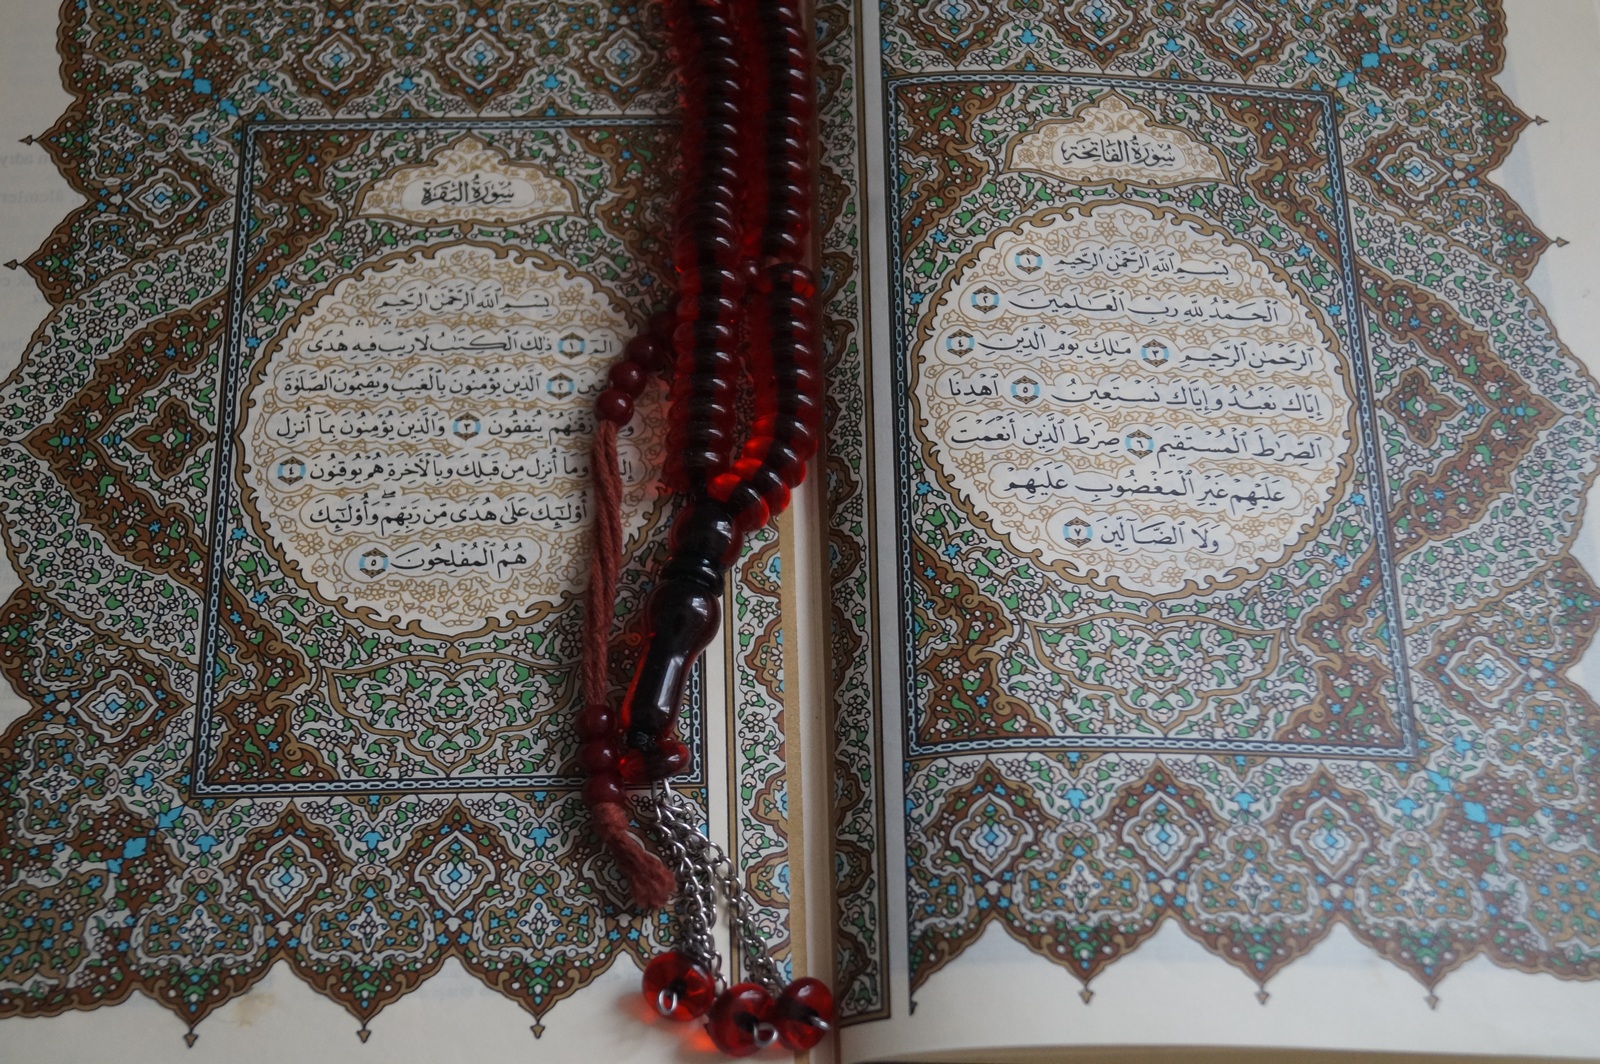 سُورَةُ الفَاتِحَةِ
بِسْمِ ٱللَّهِ ٱلرَّحْمَٰنِ ٱلرَّحِيمِ ١
ٱلْحَمْدُ لِلَّهِ رَبِّ ٱلْعَٰلَمِينَ ٢
ٱلرَّحْمَٰنِ ٱلرَّحِيمِ ٣ مَٰلِكِ يَوْمِ ٱلدِّينِ ٤
إِيَّاكَ نَعْبُدُ وَإِيَّاكَ نَسْتَعِينُ ٥ ٱهْدِنَا
ٱلصِّرَٰطَ ٱلْمُسْتَقِيمَ ٦ صِرَٰطَ ٱلَّذِينَ أَنْعَمْتَ
عَلَيْهِمْ غَيْرِ ٱلْمَغْضُوبِ عَلَيْهِمْ
وَلَا ٱلضَّآلِّينَ ٧
سُورَةُ البَقَرَةِ
بِسْمِ ٱللَّهِ ٱلرَّحْمَٰنِ ٱلرَّحِيمِ
الٓمٓ ١ ذَٰلِكَ ٱلْكِتَٰبُ لَا رَيْبَ فِيهِ هُدًى
٢ ٱلَّذِينَ يُؤْمِنُونَ بِٱلْغَيْبِ وَيُقِيمُونَ ٱلصَّلَوٰةَ
يُنفِقُونَ ٣ وَٱلَّذِينَ يُؤْمِنُونَ بِمَآ أُنزِلَ
وَمَآ أُنزِلَ مِن قَبْلِكَ وَبِٱلْأٓخِرَةِ هُمْ يُوقِنُونَ ٤
أُو۟لَٰٓئِكَ عَلَىٰ هُدًى مِّن رَّبِّهِمْ ۖ وَأُو۟لَٰٓئِكَ
هُمُ ٱلْمُفْلِحُونَ ٥